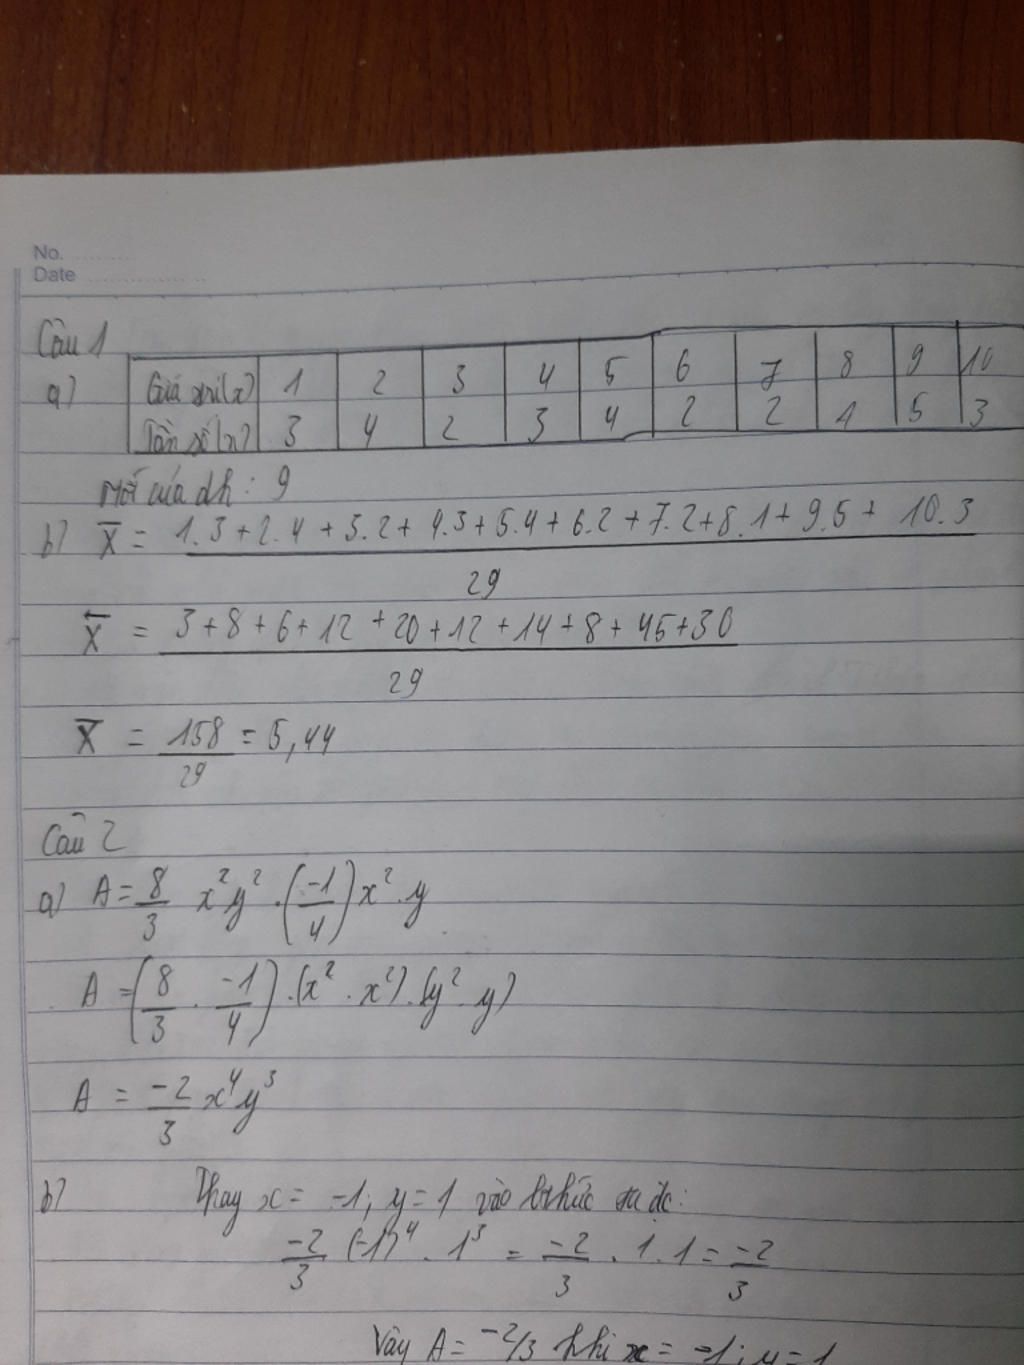 No.
Date
Câu 1
a) Giá trị (x) 1 2 3 4 5 6 7 8 9 10
Tần số (n) 3 4 2 3 4 2 2 1 5 3
Mốt của dh: 9
b) X̄ = (1.3+2.4+3.2+4.3+5.4+6.2+7.2+8.1+9.5+10.3)/29
X̄ = (3+8+6+12+20+12+14+8+45+30)/29
X̄ = 158/29 = 5,44
Câu 2
a) A = 8/3 x²y² . (-1/4) x² . y
A = (8/3 . -1/4) . (x² . x²) . (y² . y)
A = -2/3 x⁴y³
b) Thay x = -1; y = 1 vào bthức ta đc:
-2/3 (-1)⁴ . 1³ = -2/3 . 1 . 1 = -2/3
Vậy A = -2/3 khi x = -1; y = 1